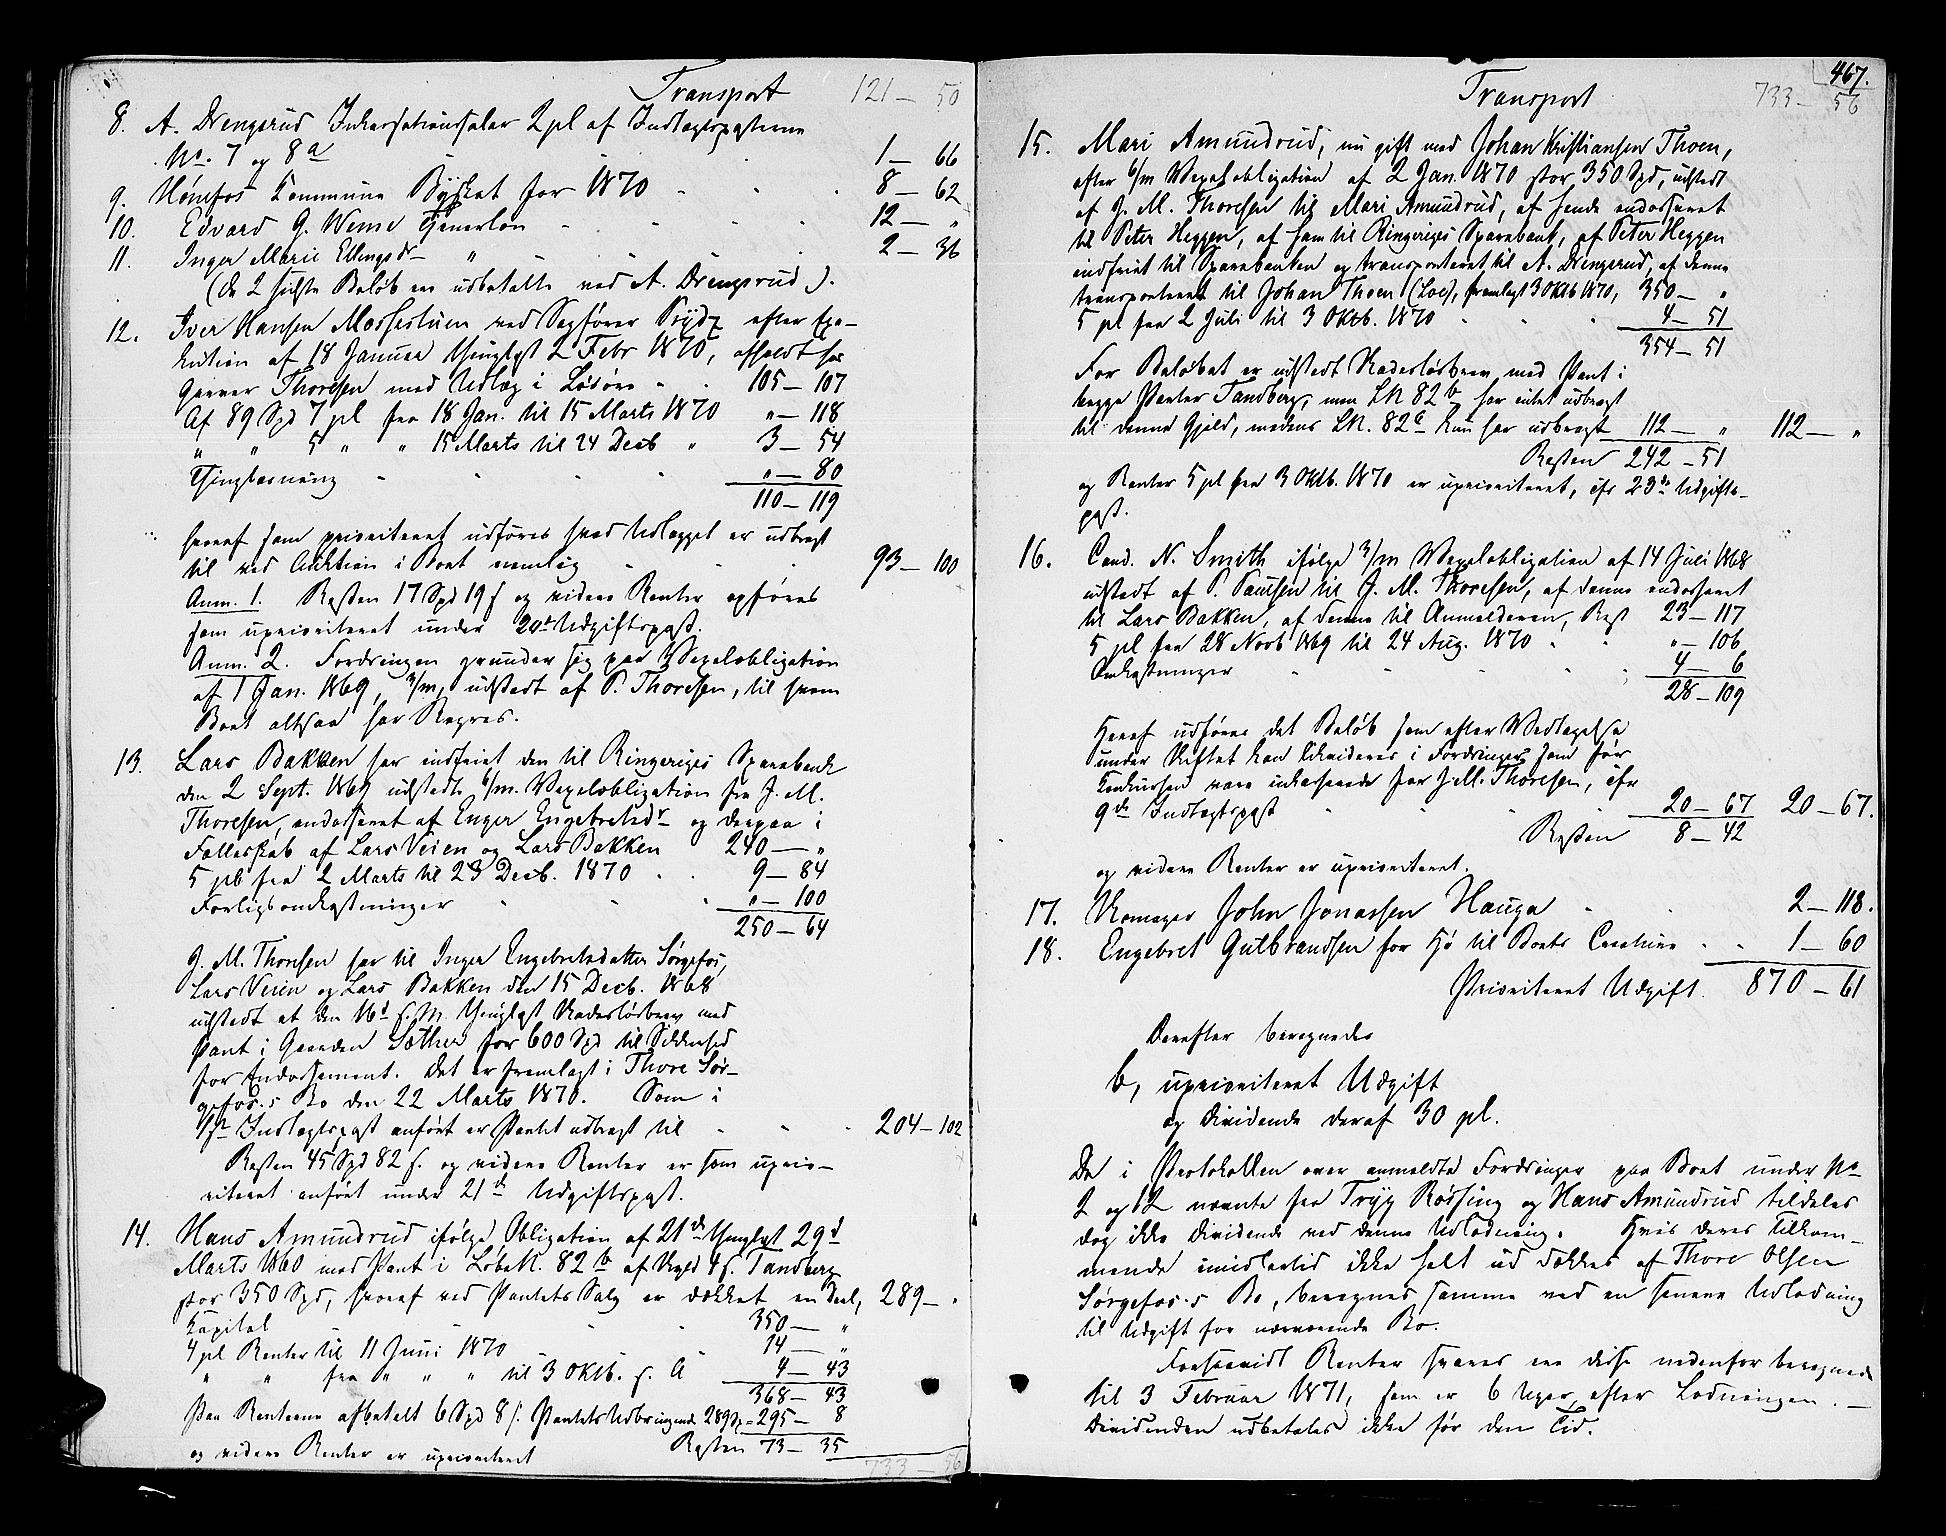 Transport 121 — 50
8. A. Drengsrud Inkassationssalær 2 pC af Indtægtsposterne
No. 7 og 8a 1 — 66
9. Hønefos Kommune Byskat for 1870 8 — 62
10. Edvard G. Weme Tjenerløn 12 — "
11. Inger Marie Ellingsdr " 2 — 36
(de 2 sidste Beløb ere udbetalte ved A. Drengsrud).
12. Iver Hansen Mosfestuen ved Sagfører Prydz efter Exe-
kution af 18 Januar thinglyst 2 Febr 1870, afholdt hos
Gunner Thoresen med Udlæg i Løsøre 105 — 107
Af 89 Spd 7 pC fra 18 Jan. til 15 Marts 1870 " — 118
" " 5 " " 15 Marts til 24 Decb " 3 — 54
Thinglæsning " — 80
110 — 119
hvoraf som prioriteret udføres hvad Udlægget er udbragt
til ved Auktion i Boet nemlig 93 — 100
Anm. 1. Resten 17 Spd 19 s og videre Renter opføres
som uprioriteret under 20de Udgiftspost.
Anm. 2. Fordringen grunder sig paa Vexelobligation
af 1 Jan. 1869, 3/m, udstedt af P. Thoresen, til hvem
Boet altsaa har Regres.
13. Lars Bakken har indfriet den til Ringeriges Sparebank
den 2 Sept. 1869 udstedte 6/m. Vexelobligation fra J. M.
Thoresen, endosseret af Inger Engebretsdr og derpaa i
Fællesskab af Lars Veien og Lars Bakken 240 — "
5 pC fra 2 Marts til 23 Decb. 1870 9 — 84
Forligsomkostninger " — 100
250 — 64
J. M. Thoresen har til Inger Engebretsdatter Sørgefos,
Lars Veien og Lars Bakken den 15 Decb. 1868
udstedt et den 16d s. M. thinglyst Skadesløsbrev med
Pant i Gaarden Sæther for 600 Spd til Sikkerhed
for Endossement. Det er fremlagt i Thore Sør-
gefos.s Bo den 22 Marts 1870. Som i
1ste Indtægtspost anført er Pantet udbragt til 204 — 102
Resten 45 Spd 82 s. og videre Renter er som uprio-
riteret anført under 21de Udgiftspost.
14. Hans Amundrud ifølge Obligation af 21de thinglyst 29d
Marts 1860 med Pant i Løbe N. 82 b af Skyld 4 s. Tandberg
stor 350 Spd, hvoraf ved Pantets Salg er dækket en Deel, 289 — "
Kapital 350 — "
4 pC Renter til 11 Juni 1870 14 — "
" " fra " " " til 3 Oktb. s. A 4 — 43
368 — 43
Paa Renterne afbetalt 6 Spd 8 s. Pantets Udbringende 289 Spd = 295 — 8
og videre Renter er uprioriteret Resten 73 — 35
733 — 56
467.
Transport 733 — 56
15. Mari Amundrud, nu gift med Johan Kristiansen Thoen,
efter 6/m Vexelobligation af 2 Jan. 1870 stor 350 Spd, udstedt
af J. M. Thoresen til Mari Amundrud, af hende endosseret
til Peter Heggen, af ham til Ringeriges Sparebank, af Peter Heggen
indfriet til Sparebanken og transporteret til A. Drengsrud, af denne
transporteret til Johan Thoen (Loe), fremlagt 3 Oktb 1870, 350 — "
5 pC fra 2 Juli til 3 Oktb. 1870 4 — 51
354 — 51
For Beløbet er udstedt Skadesløsbrev med Pant i
begge Parter Tandberg, men LN 82 b har intet udbragt
til denne Gjeld, medens LN. 82 a kun har udbragt 112 — " 112 — "
Resten 242 — 51
og Renter 5 pC fra 3 Oktb. 1870 er uprioriteret, cfr 23de Udgifts-
post.
16. Cand. N. Smith ifølge 3/m Vexelobligation af 14 Juli 1868
udstedt af P. Paulsen til J. M. Thoresen, af denne endosseret
til Lars Bakken, af denne til Anmelderen, Rest 23 — 117
5 pC fra 28 Novb 1869 til 24 Aug. 1870 " — 106
Omkostninger 4 — 6
28 — 109
Heraf udføres det Beløb som efter Vedtagelse
under Skiftet kan likvideres i Fordringer som før
Konkursen vare inkasserede for J. M. Thoresen, cfr
9de Indtægtspost 20 — 67 20 — 67.
Resten 8 — 42
og videre Renter er uprioriteret.
17. Skomager John Jonassen Hauga 2 — 118.
18. Engebret Gulbrandsen for Hø til Boets Creature 1 — 60
Prioriteret Udgift. 870 — 61
Derefter beregnes
b, uprioriteret Udgift
og Dividende deraf 30 pC.
De i Protokollen over anmeldte Fordringer paa Boet under No
2 og 12 nævnte fra Tryg Røssing og Hans Amundrud tildeles
dog ikke Dividende ved denne Udlodning. Hvis deres Tilkom-
mende imidlertid ikke helt ud dækkes af Thore Olsen
Sørgefos.s Bo, beregnes samme ved en senere Udlodning
til Udgift for nærværende Bo.
Forsaavidt Renter svares ere disse nedenfor beregnede
til 3 Februar 1871, som er 6 Uger efter Lodningen. —
Dividenden udbetales ikke før den Tid.